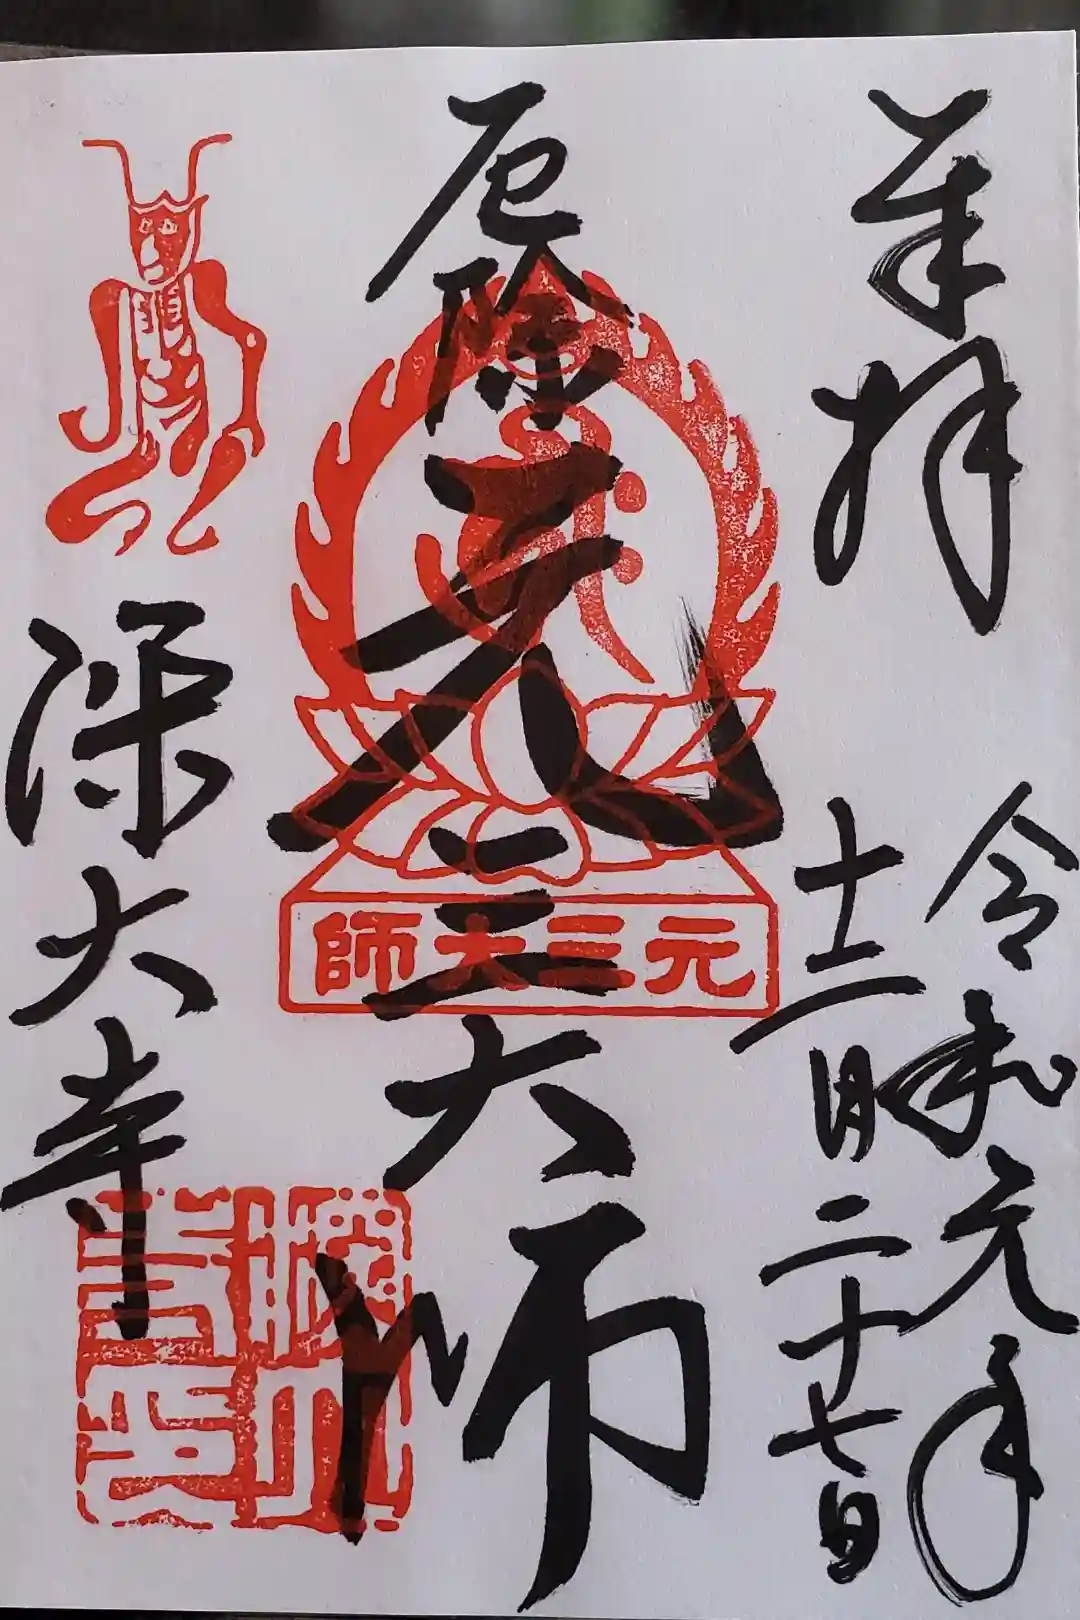 奉拝
令和元年
十二月二十七日
厄除
元三大師
元三大師
深大寺
深大寺印